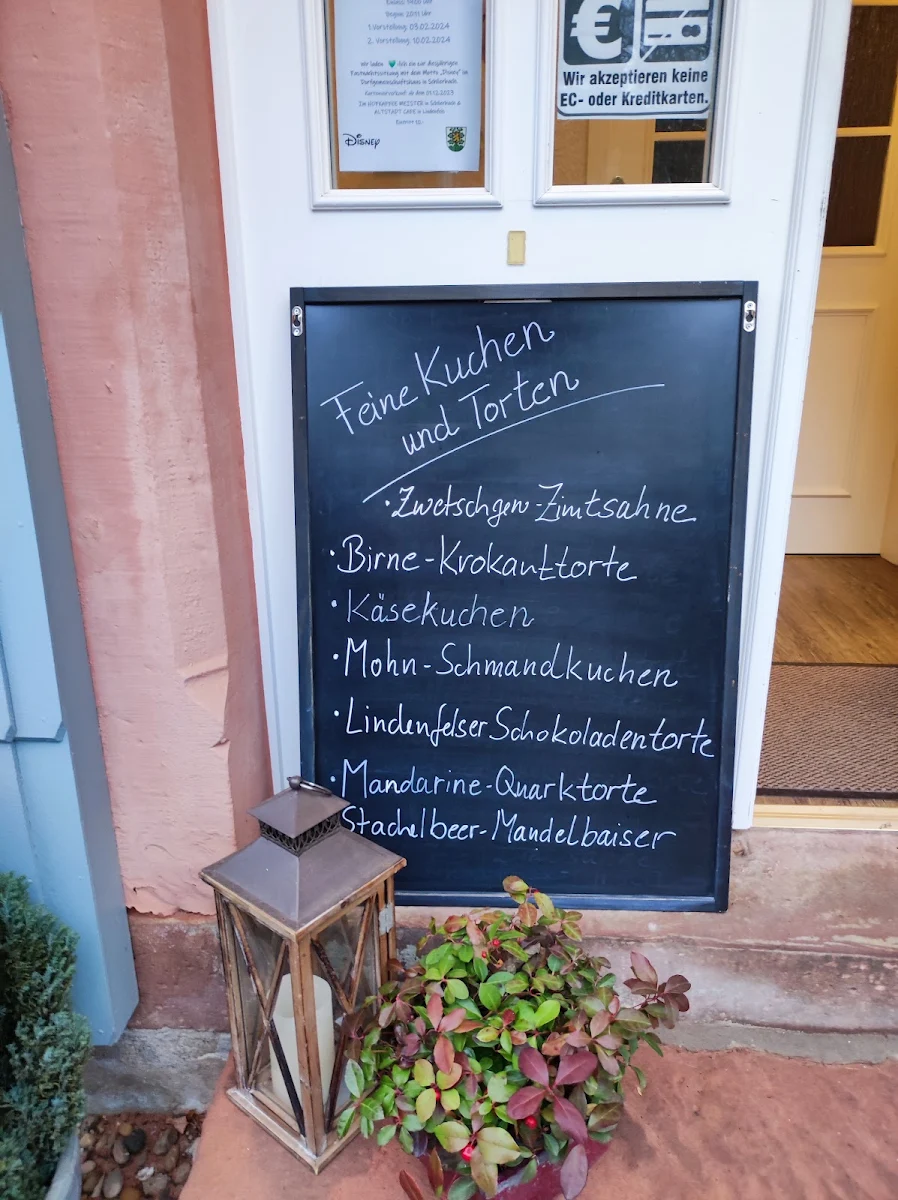 Beginn: 20:11 Uhr
1. Vorstellung: 03.02.2024
2. Vorstellung: 10.02.2024
Wir laden
Fastnachtssitzung mit dem Motto „Disney" im
Dorfgemeinschaftshaus in Schlierbach.
Kartenvorverkauf ab dem 01.12.2023
ALTSTADT CAFE in Lindenfels
DISNEY
€
Wir akzeptieren keine
EC- oder Kreditkarten.
Feine Kuchen
und Torten
• Zwetschgen-Zimtsahne
• Birne-Krokanttorte
• Käsekuchen
• Mohn-Schmandkuchen
• Lindenfelser Schokoladentorte
• Mandarine-Quarktorte
Stachelbeer-Mandelbaiser